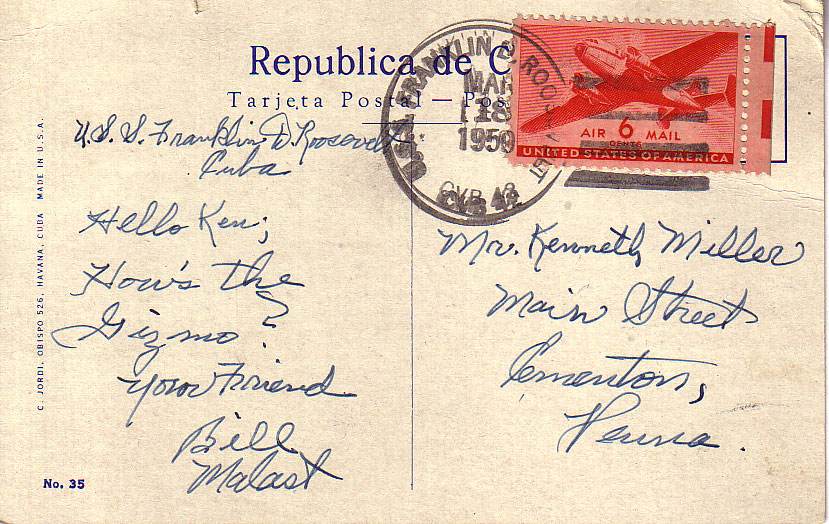 Republica de C
Tarjeta Postal — Pos
U.S.S. FRANKLIN D. ROOSEVELT
MAR
18
1950
CVB 42
AIR 6 MAIL
CENTS
UNITED STATES OF AMERICA
U.S.S. Franklin D. Roosevelt
Cuba
Hello Ken;
How's the
Gizmo?
Your Friend
Bill
Malast
Mr. Kenneth Miller
Main Street
Cementon,
Penna.
C. JORDI, OBISPO 526, HAVANA, CUBA MADE IN U.S.A.
No. 35